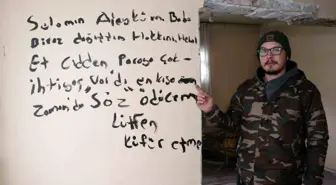 Selamın Aleyküm Baba
Biraz dağıttım Hakkını Helal
Et Cidden Paraya Çok
ihtiyaç Vardı en kısa
Zamanda "SÖZ" Ödücem
Lütfen
küfür etme